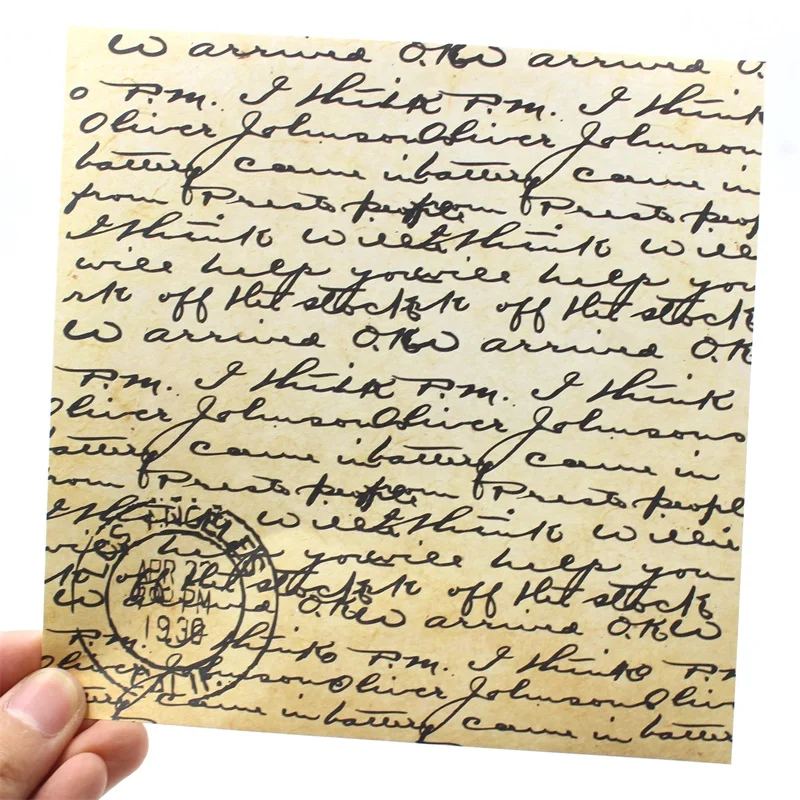 W arrived O.K W arrived O.
o P.M. I think P.M. I think
Oliver Johnson Oliver Johnson
battery came in battery came in
from Presto people from Presto peop
I think will I think will
will help you will help you
rk off the stock rk off the stock
W arrived O.K W arrived O.K
P.M. I think P.M. I think
Oliver Johnson Oliver Johnsons
battery came in battery came in
rom Presto people from Presto people
I think will I think will
will help you will help you
rk off the stock rk off the stock
W arrived O.K W arrived O.K W
P.M. I think P.M. I think P.M.
Oliver Johnson Oliver Johnson Oliv
battery came in battery came in batter
LOS ANGELES
APR 22
PM
1930
CALIF.